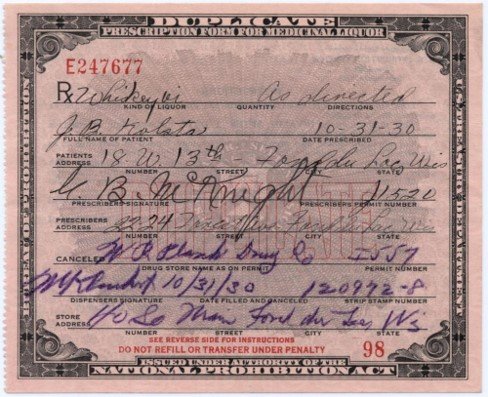 DUPLICATE
PRESCRIPTION FORM FOR MEDICINAL LIQUOR
E247677
Rx Whiskey as directed
KIND OF LIQUOR QUANTITY DIRECTIONS
J. B. 10-31-30
FULL NAME OF PATIENT DATE PRESCRIBED
PATIENTS ADDRESS 18 W. 13th - Fond du Lac Wis
NUMBER STREET CITY STATE
G B. McKnight 11520
PRESCRIBERS SIGNATURE PRESCRIBERS PERMIT NUMBER
PRESCRIBERS ADDRESS 22-24
NUMBER STREET CITY STATE
CANCELED Drug Co I-557
DRUG STORE NAME AS ON PERMIT PERMIT NUMBER
10/31/30 120972-8
DISPENSERS SIGNATURE DATE FILLED AND CANCELED STRIP STAMP NUMBER
STORE ADDRESS So Main Fond du Lac, Wis
NUMBER STREET CITY STATE
SEE REVERSE SIDE FOR INSTRUCTIONS
DO NOT REFILL OR TRANSFER UNDER PENALTY 98
ISSUED UNDER AUTHORITY OF THE
NATIONAL PROHIBITION ACT
BUREAU OF PROHIBITION
U.S. TREASURY DEPARTMENT